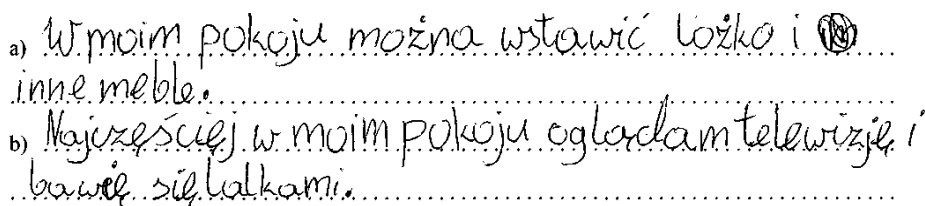 a) W moim pokoju można wstawić lożko i
inne meble.
b) Najczęściej w moim pokoju oglądam telewizję i
bawię się lalkami.